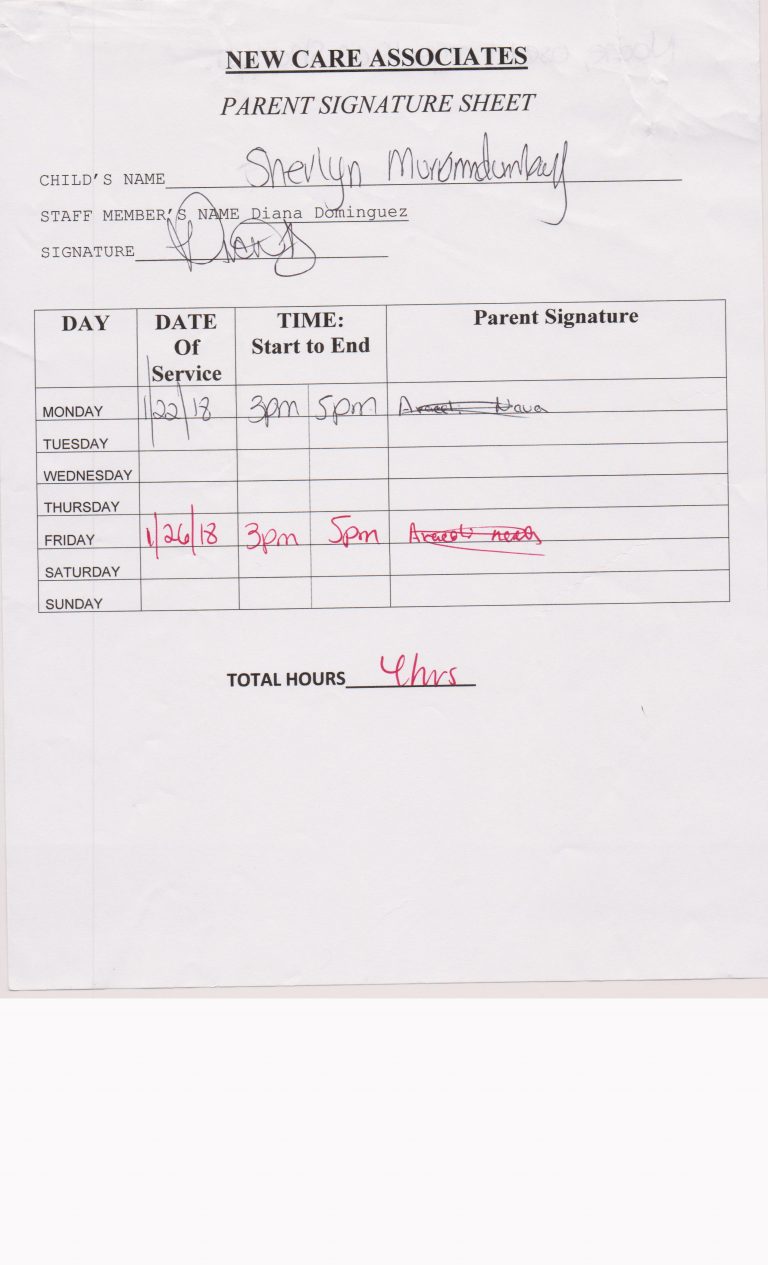 NEW CARE ASSOCIATES
PARENT SIGNATURE SHEET
CHILD'S NAME Sherlyn
STAFF MEMBER'S NAME Diana Dominguez
SIGNATURE
DAY DATE Of Service TIME: Start to End Parent Signature
MONDAY 1/22/18 3pm 5pm Araceli Nava
TUESDAY
WEDNESDAY
THURSDAY
FRIDAY 1/26/18 3pm 5pm Araceli
SATURDAY
SUNDAY
TOTAL HOURS 4hrs